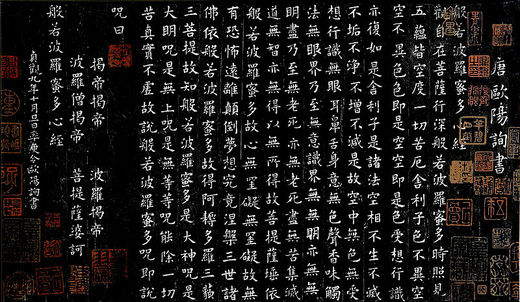 唐歐陽詢書
般若波羅蜜多經
觀自在菩薩行深般若波羅蜜多時照見
五蘊皆空度一切苦厄舍利子色不異空
空不異色色即是空空即是色受想行識
亦復如是舍利子是諸法空相不生不滅
不垢不淨不增不減是故空中無色無受
想行識無眼耳鼻舌身意無色聲香味觸
法無眼界乃至無意識界無無明亦無無
明盡乃至無老死亦無老死盡無苦集滅
道無智亦無得以無所得故菩提薩埵依
般若波羅蜜多故心無罣礙無罣礙故無
有恐怖遠離顛倒夢想究竟涅槃三世諸
佛依般若波羅蜜多故得阿耨多羅三藐
三菩提故知般若波羅蜜多是大神呪是
大明呪是無上呪是無等等呪能除一切
苦真實不虛故說般若波羅蜜多呪即說
呪曰
揭帝揭帝 波羅揭帝
波羅僧揭帝 菩提薩婆訶
般若波羅蜜多心經
貞觀九年十月旦日率更令歐陽詢書